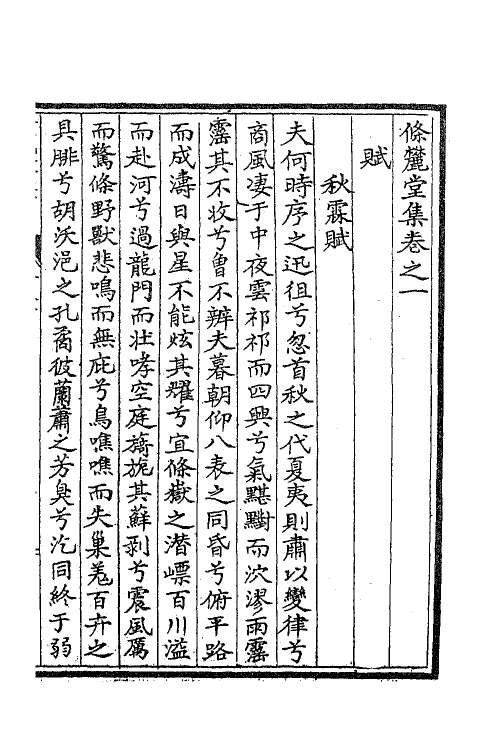 條麓堂集卷之一
賦
秋霖賦
夫何時序之迅徂兮忽首秋之代夏夷則肅以變律兮
商風凄于中夜雲祁祁而四興兮氣黮黮而泬漻雨霪
霪其不收兮曾不辨夫暮朝仰八表之同昏兮俯平路
而成濤日與星不能炫其耀兮宜條嶽之潛嶂百川溢
而赴河兮過龍門而壯哮空庭旖旎其蘚剥兮震風厲
而驚條野獸悲鳴而無庇兮鳥噍噍而失巢羗百卉之
具腓兮胡沃浥之孔矞彼蘭蕭之芳臭兮汔同終于弱